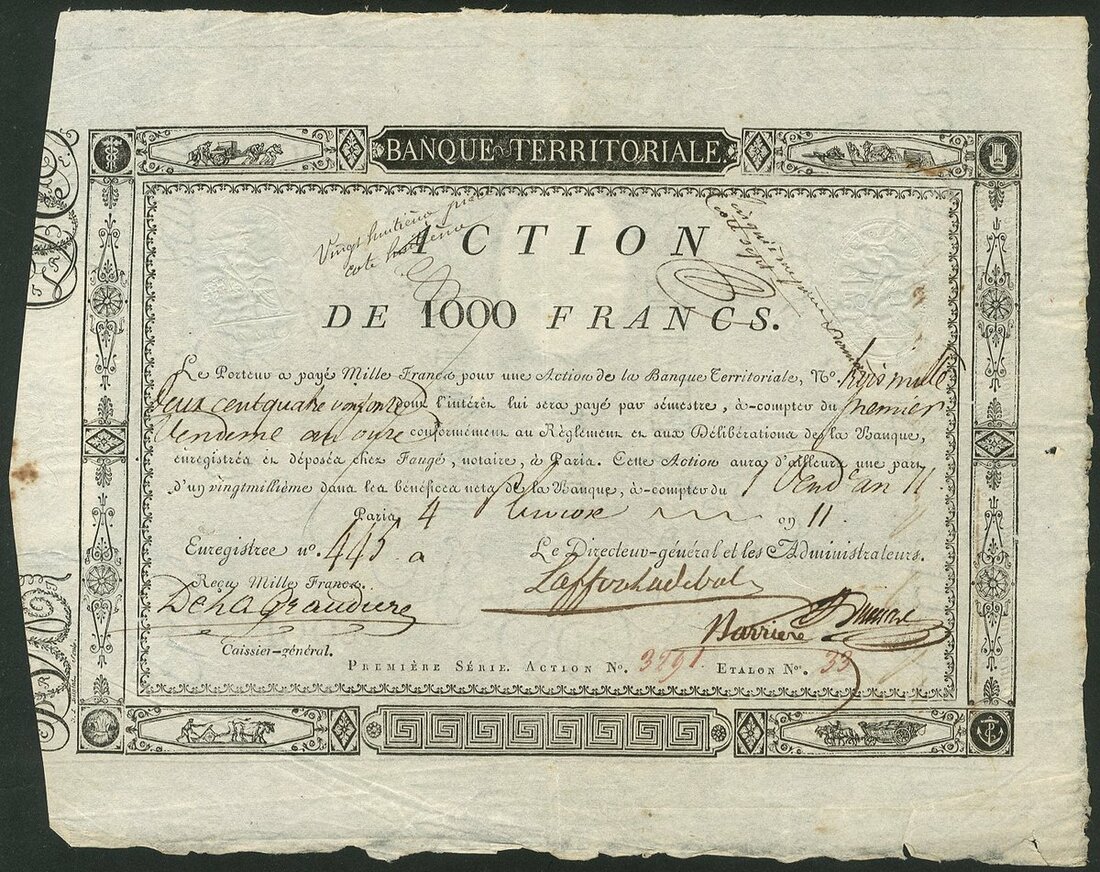 BANQUE TERRITORIALE
Vingt huitième
cote
ACTION
DE 1000 FRANCS.
Le Porteur a payé Mille Francs pour une Action de la Banque Territoriale, N.º trois mille
deux cent quatre vingt onze dont l'intérêt lui sera payé par sémestre, à-compter du premier
Vendeme an onze conformément au Règlement et aux Délibérations de la Banque,
enregistrés et déposés chez Faugé, notaire, à Paris. Cette Action aura d'ailleurs une part
d'un vingtmillième dans les bénéfices nets de la Banque, à-compter du 1 Vend.re an 11
Paris, 4 an 11
Enregistrée n.º 445
Le Directeur-général et les Administrateurs.
Reçu Mille Francs.
De la Graudiere
Barriere
Caissier-général.
PREMIÈRE SÉRIE. ACTION Nº. 3291. ETALON Nº. 33